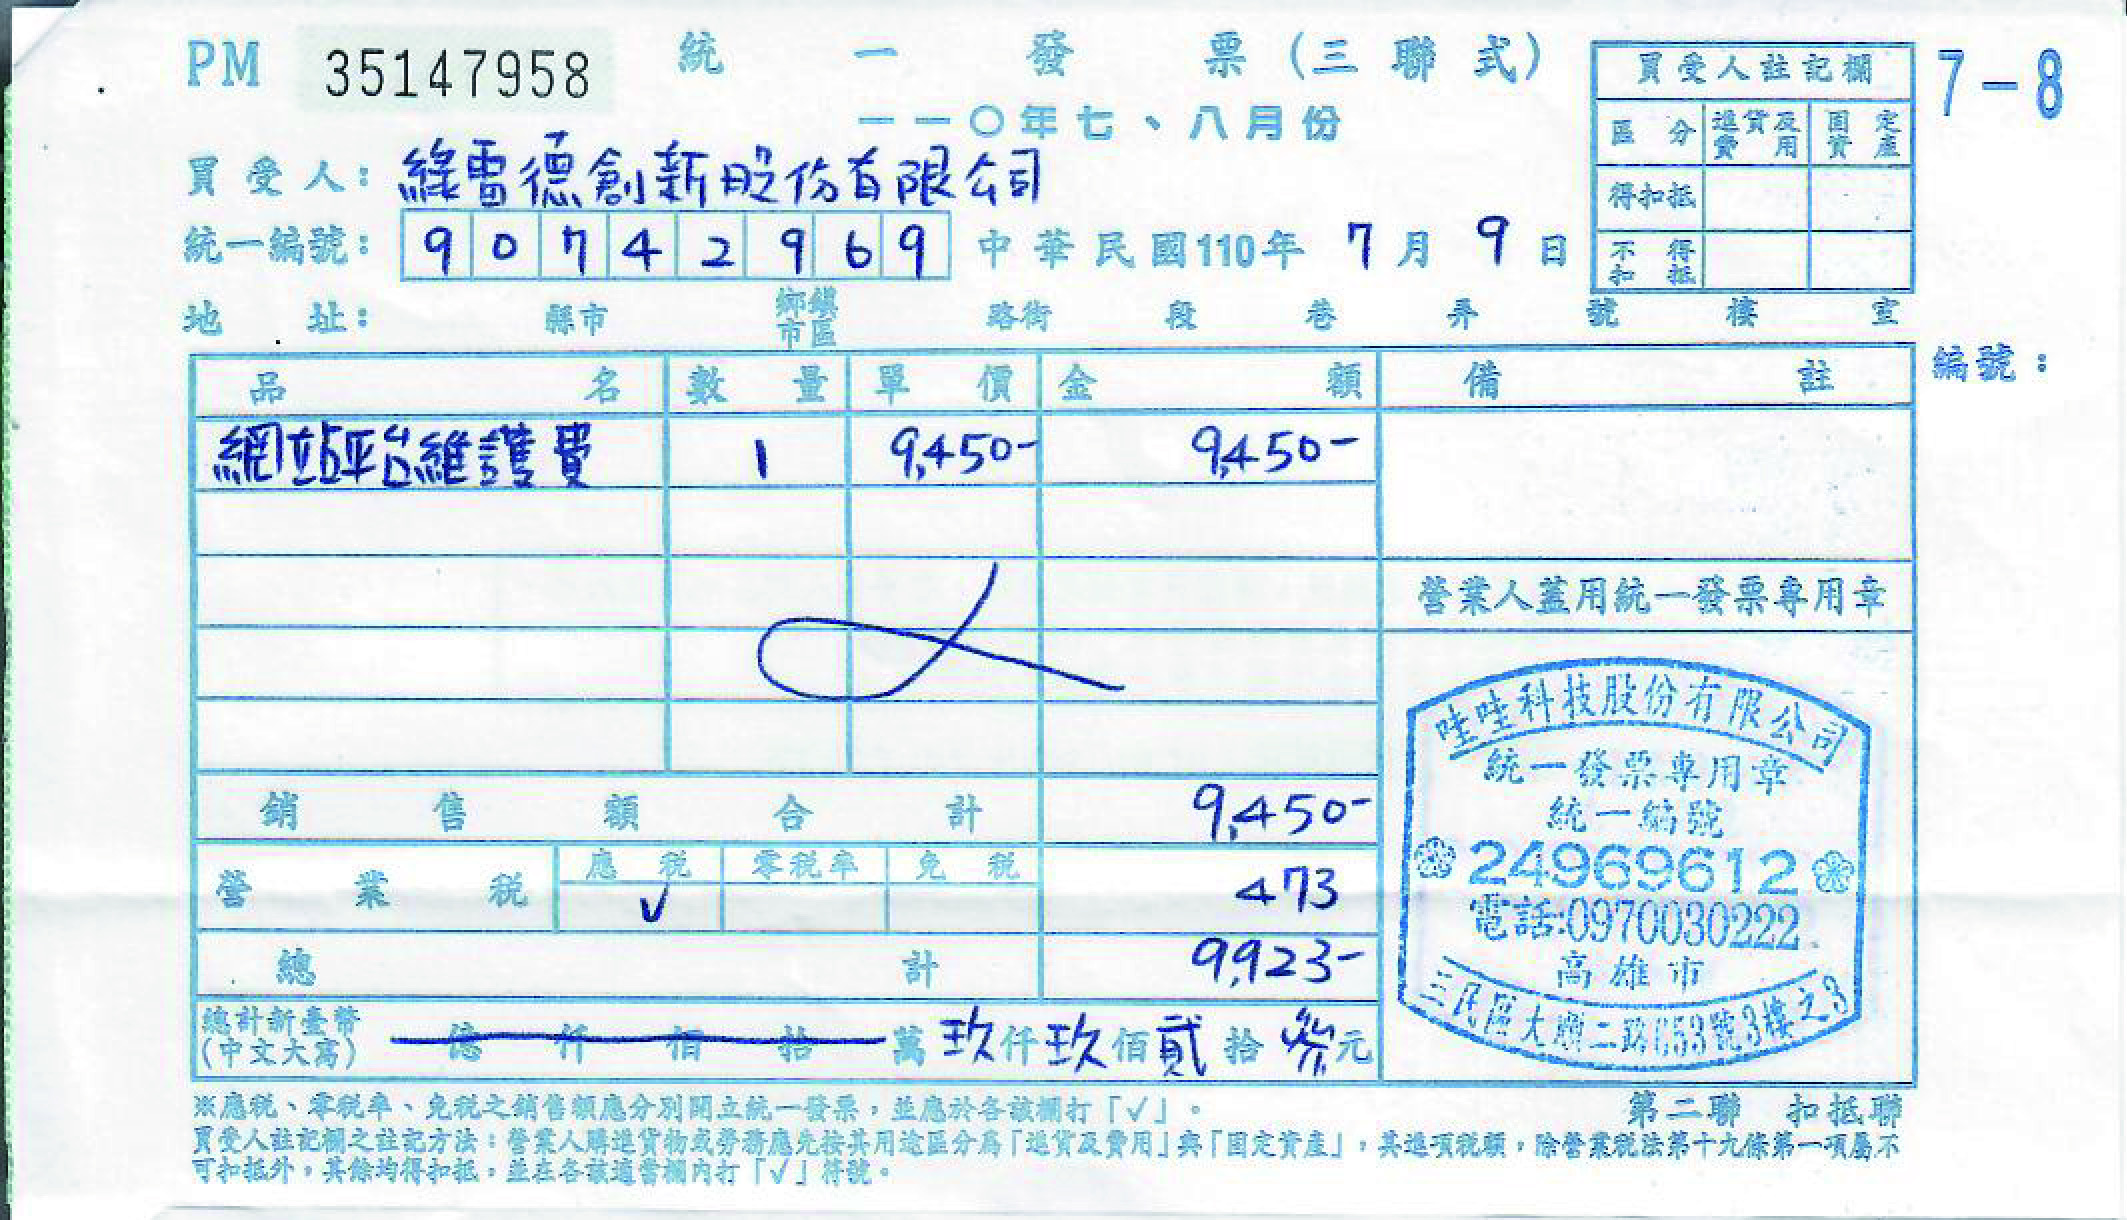 PM 35147958 統一發票(三聯式)
一一〇年七、八月份
7-8
買受人註記欄
區分 進貨及費用 固定資產
得扣抵
不得扣抵
買受人: 綠雷德創新股份有限公司
統一編號: 90742969 中華民國110年 7月 9日
地址: 縣市 鄉鎮市區 路街 段 巷 弄 號 樓 室
編號:
品名 數量 單價 金額 備註
網站平台維護費 1 9,450- 9,450-
營業人蓋用統一發票專用章
銷售額合計 9,450-
營業稅 應稅 零稅率 免稅 473
✓
總計 9,923-
總計新臺幣(中文大寫) 億 仟 佰 拾 萬 玖仟玖佰貳拾參元
哇哇科技股份有限公司
統一發票專用章
統一編號
24969612
電話:0970030222
高雄市
三民區大順二路653號3樓之3
※應稅、零稅率、免稅之銷售額應分別開立統一發票,並應於各該欄打「✓」。
第二聯 扣抵聯
買受人註記欄之註記方法:營業人購進貨物或勞務應先按其用途區分為「進貨及費用」與「固定資產」,其進項稅額,除營業稅法第十九條第一項屬不
可扣抵外,其餘均得扣抵,並在各該適當欄內打「✓」符號。